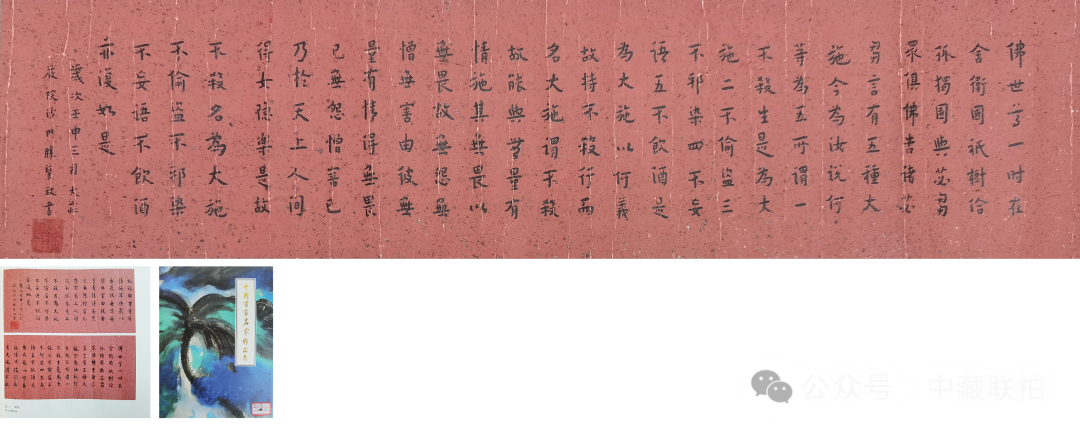 佛世尊一時在
舍衛國祇樹給
孤獨園與苾芻
眾俱佛告諸苾
芻言有五種大
施今為汝說何
等為五所謂一
不殺生是為大
施二不偷盜三
不邪染四不妄
語五不飲酒是
為大施以何義
故持不殺行而
名大施謂不殺
故能與無量有
情施其無畏以
無畏故無怨無
憎無害由彼無
量有情得無畏
已無怨憎害已
乃於天上人間
得安隱樂是故
不殺名為大施
不偷盜不邪染
不妄語不飲酒
亦復如是
歲次壬申三月
沙門勝
書
公众号 · 中藏联拍